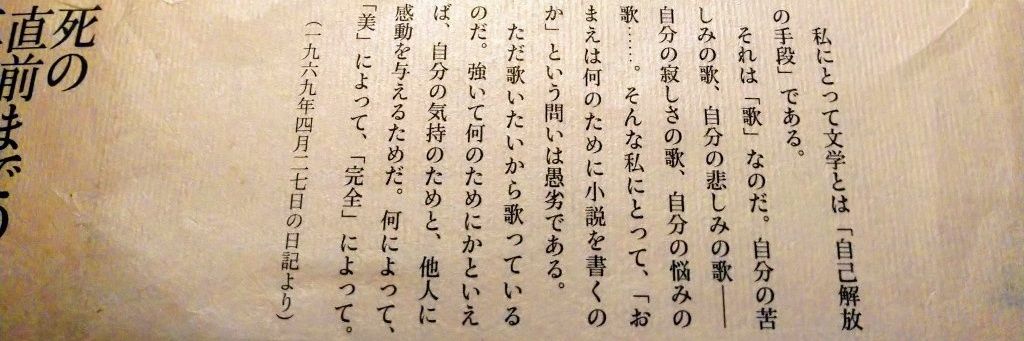 私にとって文学とは「自己解放
の手段」である。
それは「歌」なのだ。自分の苦
しみの歌、自分の悲しみの歌――
自分の寂しさの歌、自分の悩みの
歌……。そんな私にとって、「お
まえは何のために小説を書くの
か」という問いは愚劣である。
ただ歌いたいから歌っている
のだ。強いて何のためにかといえ
ば、自分の気持のためと、他人に
感動を与えるためだ。何によって、
「美」によって、「完全」によって。
（一九六九年四月二七日の日記より）
死の
直前まで